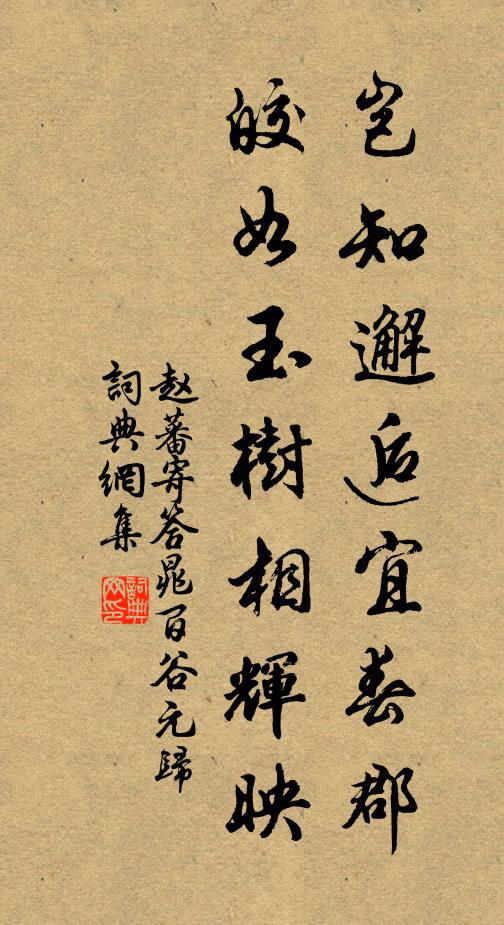 豈知邂逅宜春郡
皎如玉樹相輝映
赵蕃寄答晁百谷元歸
詞典網集
詞典網印